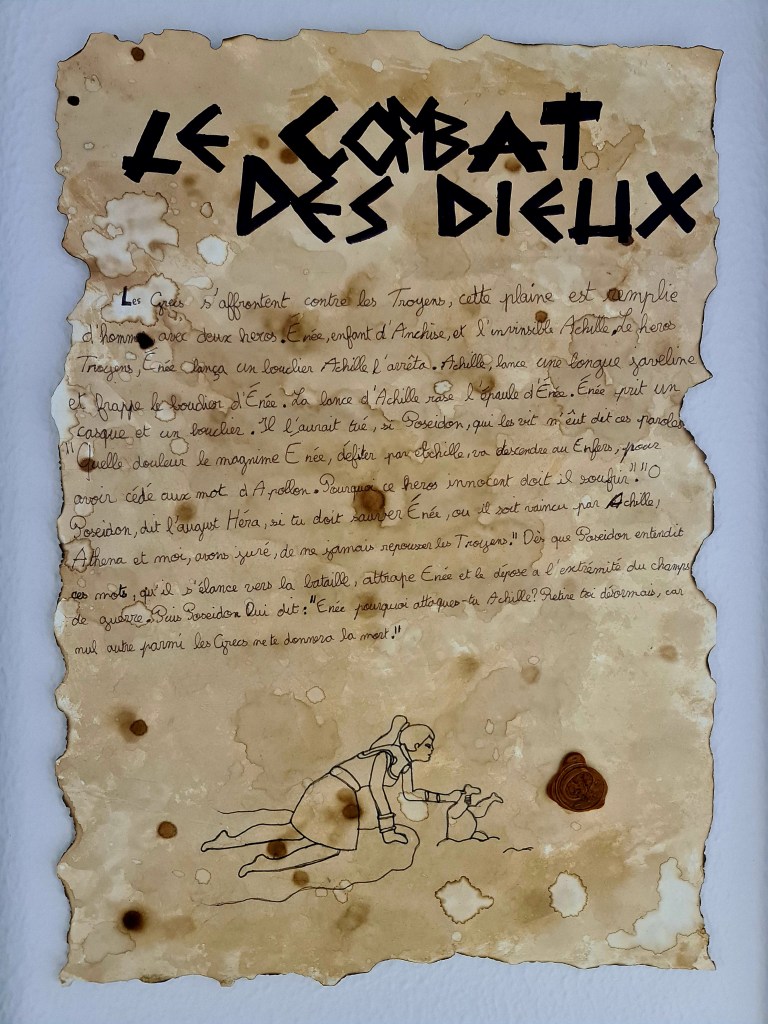 LE COMBAT
DES DIEUX
Les Grecs s'affrontent contre les Troyens, cette plaine est remplie
d'homme avec deux heros. Énée, enfant d'Anchise, et l'invinsible Achille. Le heros
Troyens, Énée lança un bouclier Achille l'arrêta. Achille, lance une longue javeline
et frappe le bouclier d'Énée. La lance d'Achille rase l'épaule d'Énée. Énée prit un
casque et un bouclier. Il l'aurait tué, si Poseidon, qui les vit n'eût dit ces paroles
"Quelle douleur le magnime Enée, défiter par Achille, va descendre au Enfers, pour
avoir cédé aux mot d'Apollon. Pourquoi ce heros innocent doit il soufrir"."O
Poseidon, dit l'august Héra, si tu doit sauver Énée, ou il soit vaincu par Achille,
Athena et moi, avons juré, de ne jamais repousser les Troyens." Dès que Poseidon entendit
ces mots, qu'il s'élance vers la bataille, attrape Enée et le dépose a l'extrémité du champs
de guerre. Puis Poseidon lui dit : "Enée pourquoi attaques-tu Achille? Retire toi désormais, car
nul autre parmi les Grecs ne te donnera la mort."